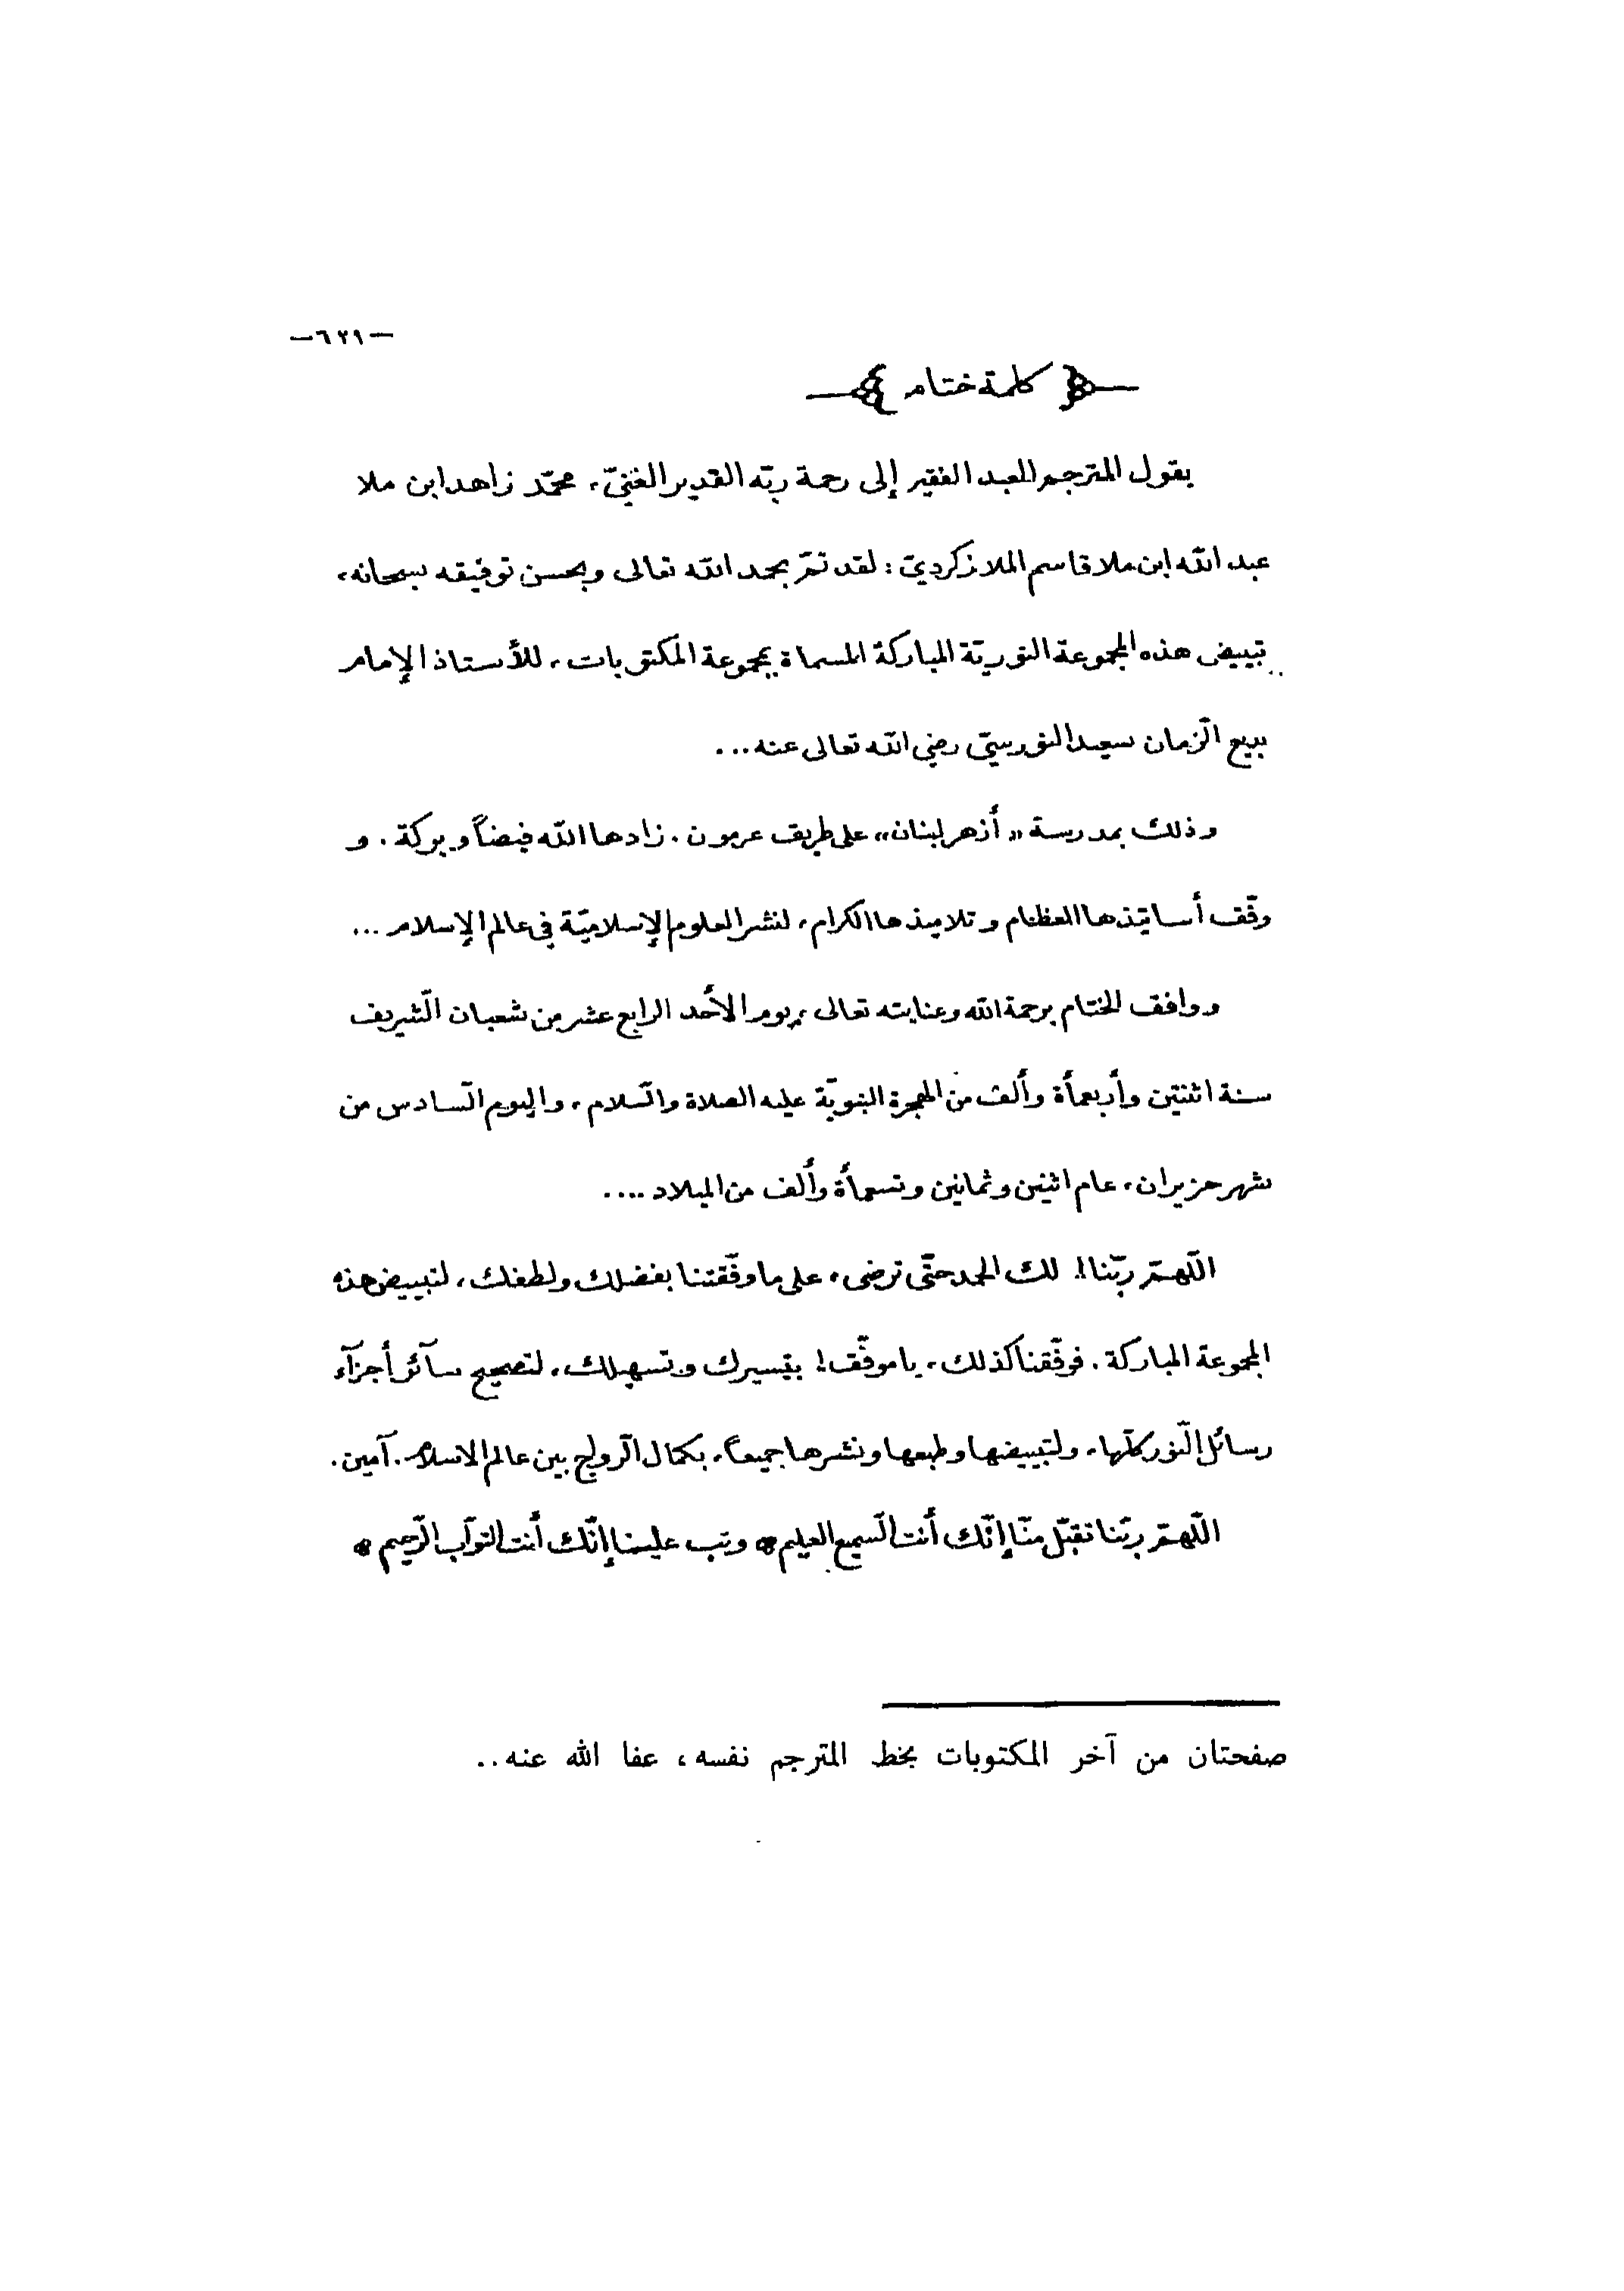 —٦٢٩—
﴿ كلمة ختام ﴾
يقول المترجم العبد الفقير إلى رحمة ربّه القدير الغنيّ، محمّد زاهد ابن ملا
عبد اللّه ابن ملا قاسم الملازكرديّ : لقد تمّ بحمد اللّه تعالى وبحسن توفيقه سبحانه،
تبييض هذه المجموعة النّوريّة المباركة المسماة بمجموعة المكتوبات، للأستاذ الإمام
بديع الزّمان سعيد النّورسيّ رضي اللّه تعالى عنه...
وذلك بمدرسة «أزهر لبنان» على طريق عرمون. زادها اللّه فيضاً وبركة. و
وفّق أساتيذها العظام وتلاميذها الكرام، لنشر العلوم الإسلاميّة في عالم الإسلام...
ووافق الختام برحمة اللّه وعنايته تعالى، يوم الأحد الرابع عشر من شعبان الشّريف
سنة اثنتين وأربعمأة وألف من الهجرة النبويّة عليه الصلاة والسّلام، واليوم السّادس من
شهر حزيران، عام اثنين وثمانين وتسعمأة وألف من الميلاد....
اللّهمّ ربّنا! لك الحمد حتّى ترضى، على ما وفّقتنا بفضلك ولطفك، لتبييض هذه
المجموعة المباركة. فوفّقنا كذلك، يا موفّق! بتيسيرك وتسهيلك، لتصحيح سآئر أجزآء
رسائل النّور كلّها، ولتبييضها وطبعها ونشرها جميعاً، بكمال الرّواج بين عالم الاسلام. آمين.
اللّهمّ ربّنا تقبّل منّا إنّك أنت السّميع العليم * وتب علينا إنّك أنت التوّاب الرّحيم *
صفحتان من آخر المكتوبات بخط المترجم نفسه، عفا الله عنه..